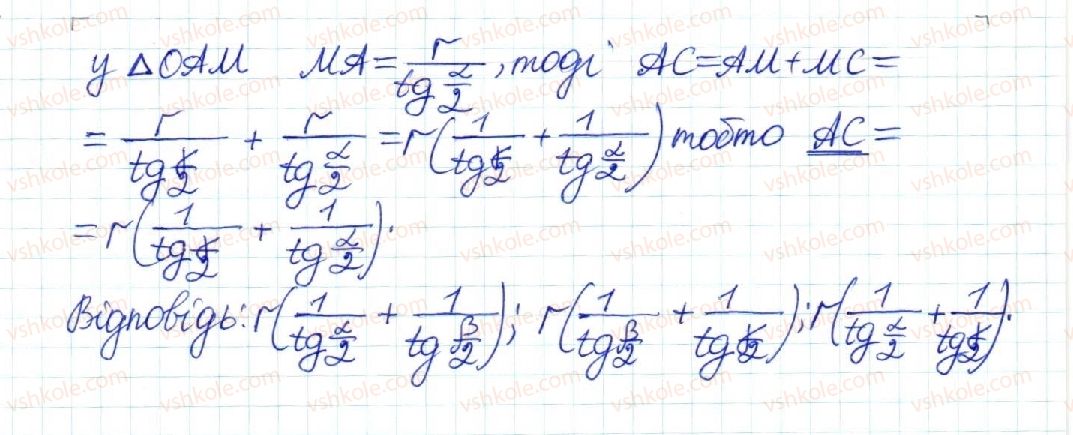 у △OAM MA = r/tg α/2, тоді AC = AM + MC =
= r/tg γ/2 + r/tg α/2 = r(1/tg γ/2 + 1/tg α/2) тобто AC =
= r(1/tg γ/2 + 1/tg α/2).
Відповідь: r(1/tg α/2 + 1/tg β/2); r(1/tg β/2 + 1/tg γ/2); r(1/tg α/2 + 1/tg γ/2).
vshkole.com